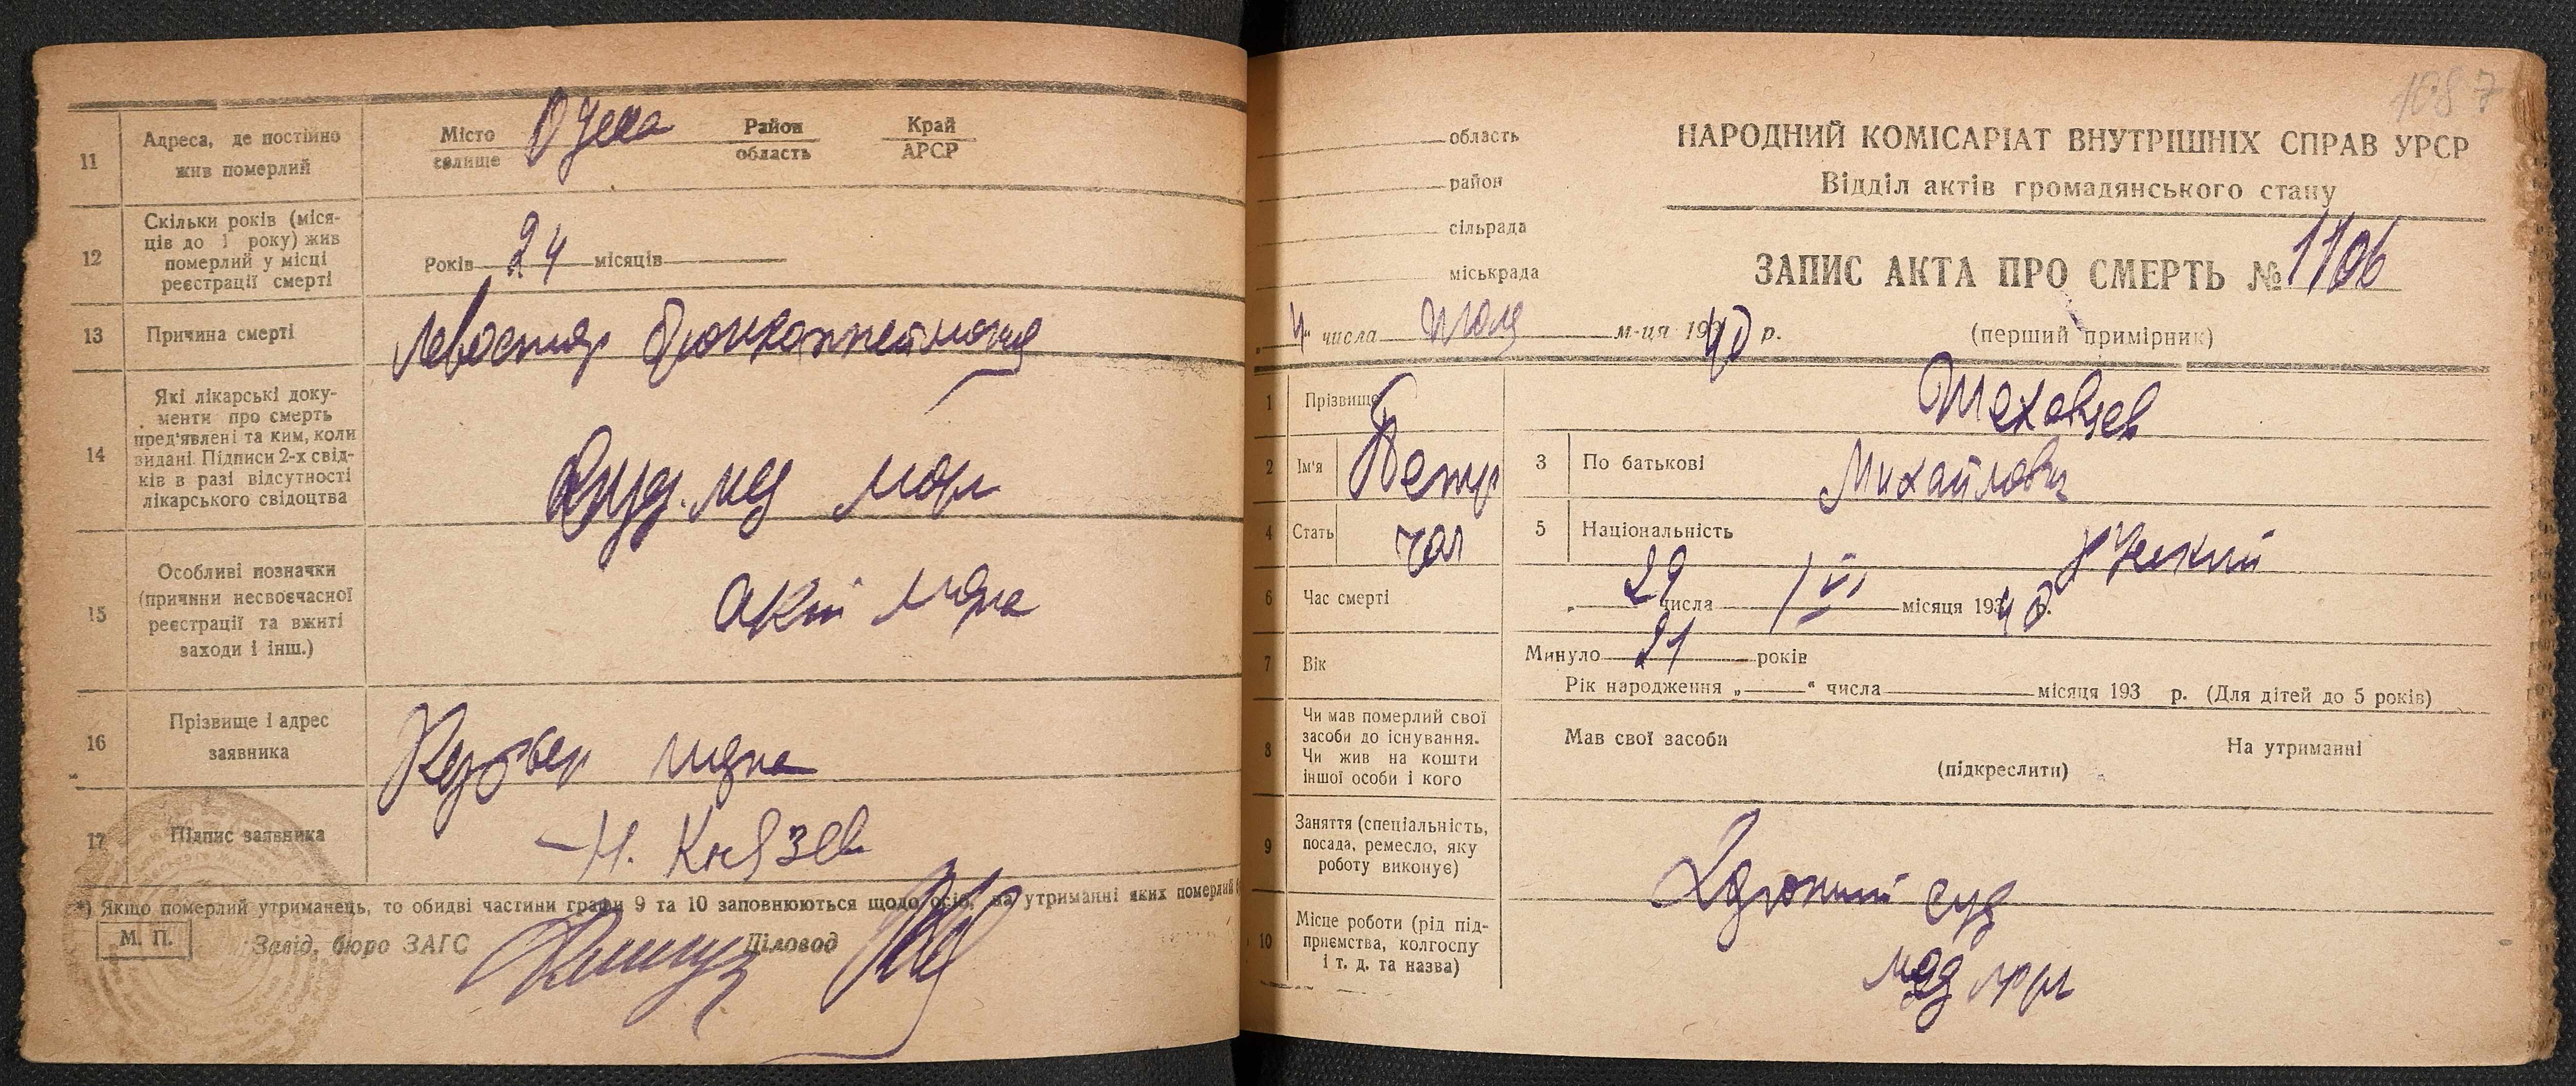 11
Адреса, де постійно
жив померлий
Місто
селище
Одеса
Район
область
Край
АРСР
12
Скільки років (міся-
ців до 1 року) жив
померлий у місці
реєстрації смерті
Років 24 місяців
13
Причина смерті
14
Які лікарські доку-
менти про смерть
пред'явлені та ким, коли
видані. Підписи 2-х свід-
ків в разі відсутності
лікарського свідоцтва
15
Особливі позначки
(причини несвоєчасної
реєстрації та вжиті
заходи і інш.)
16
Прізвище і адрес
заявника
17
Підпис заявника
Н. Князев
*) Якщо померлий утриманець, то обидві частини графи 9 та 10 заповнюються щодо осіб, на утриманні яких померлий
М. П.
Завід. бюро ЗАГС
Діловод
1087
область
район
сільрада
міськрада
НАРОДНИЙ КОМІСАРІАТ ВНУТРІШНІХ СПРАВ УРСР
Відділ актів громадянського стану
ЗАПИС АКТА ПРО СМЕРТЬ № 1106
„4" числа июля м-ця 1940 р.
(перший примірник)
1
Прізвище
2
Ім'я
Петр
3
По батькові
Михайлович
4
Стать
чол
5
Національність
руський
6
Час смерті
„29 числа VI місяця 1940 р.
7
Вік
Минуло 21 років
Рік народження „ " числа місяця 193 р. (Для дітей до 5 років)
8
Чи мав померлий свої
засоби до існування.
Чи жив на кошти
іншої особи і кого
Мав свої засоби
На утриманні
(підкреслити)
9
Заняття (спеціальність,
посада, ремесло, яку
роботу виконує)
10
Місце роботи (рід під-
приємства, колгоспу
і т. д. та назва)